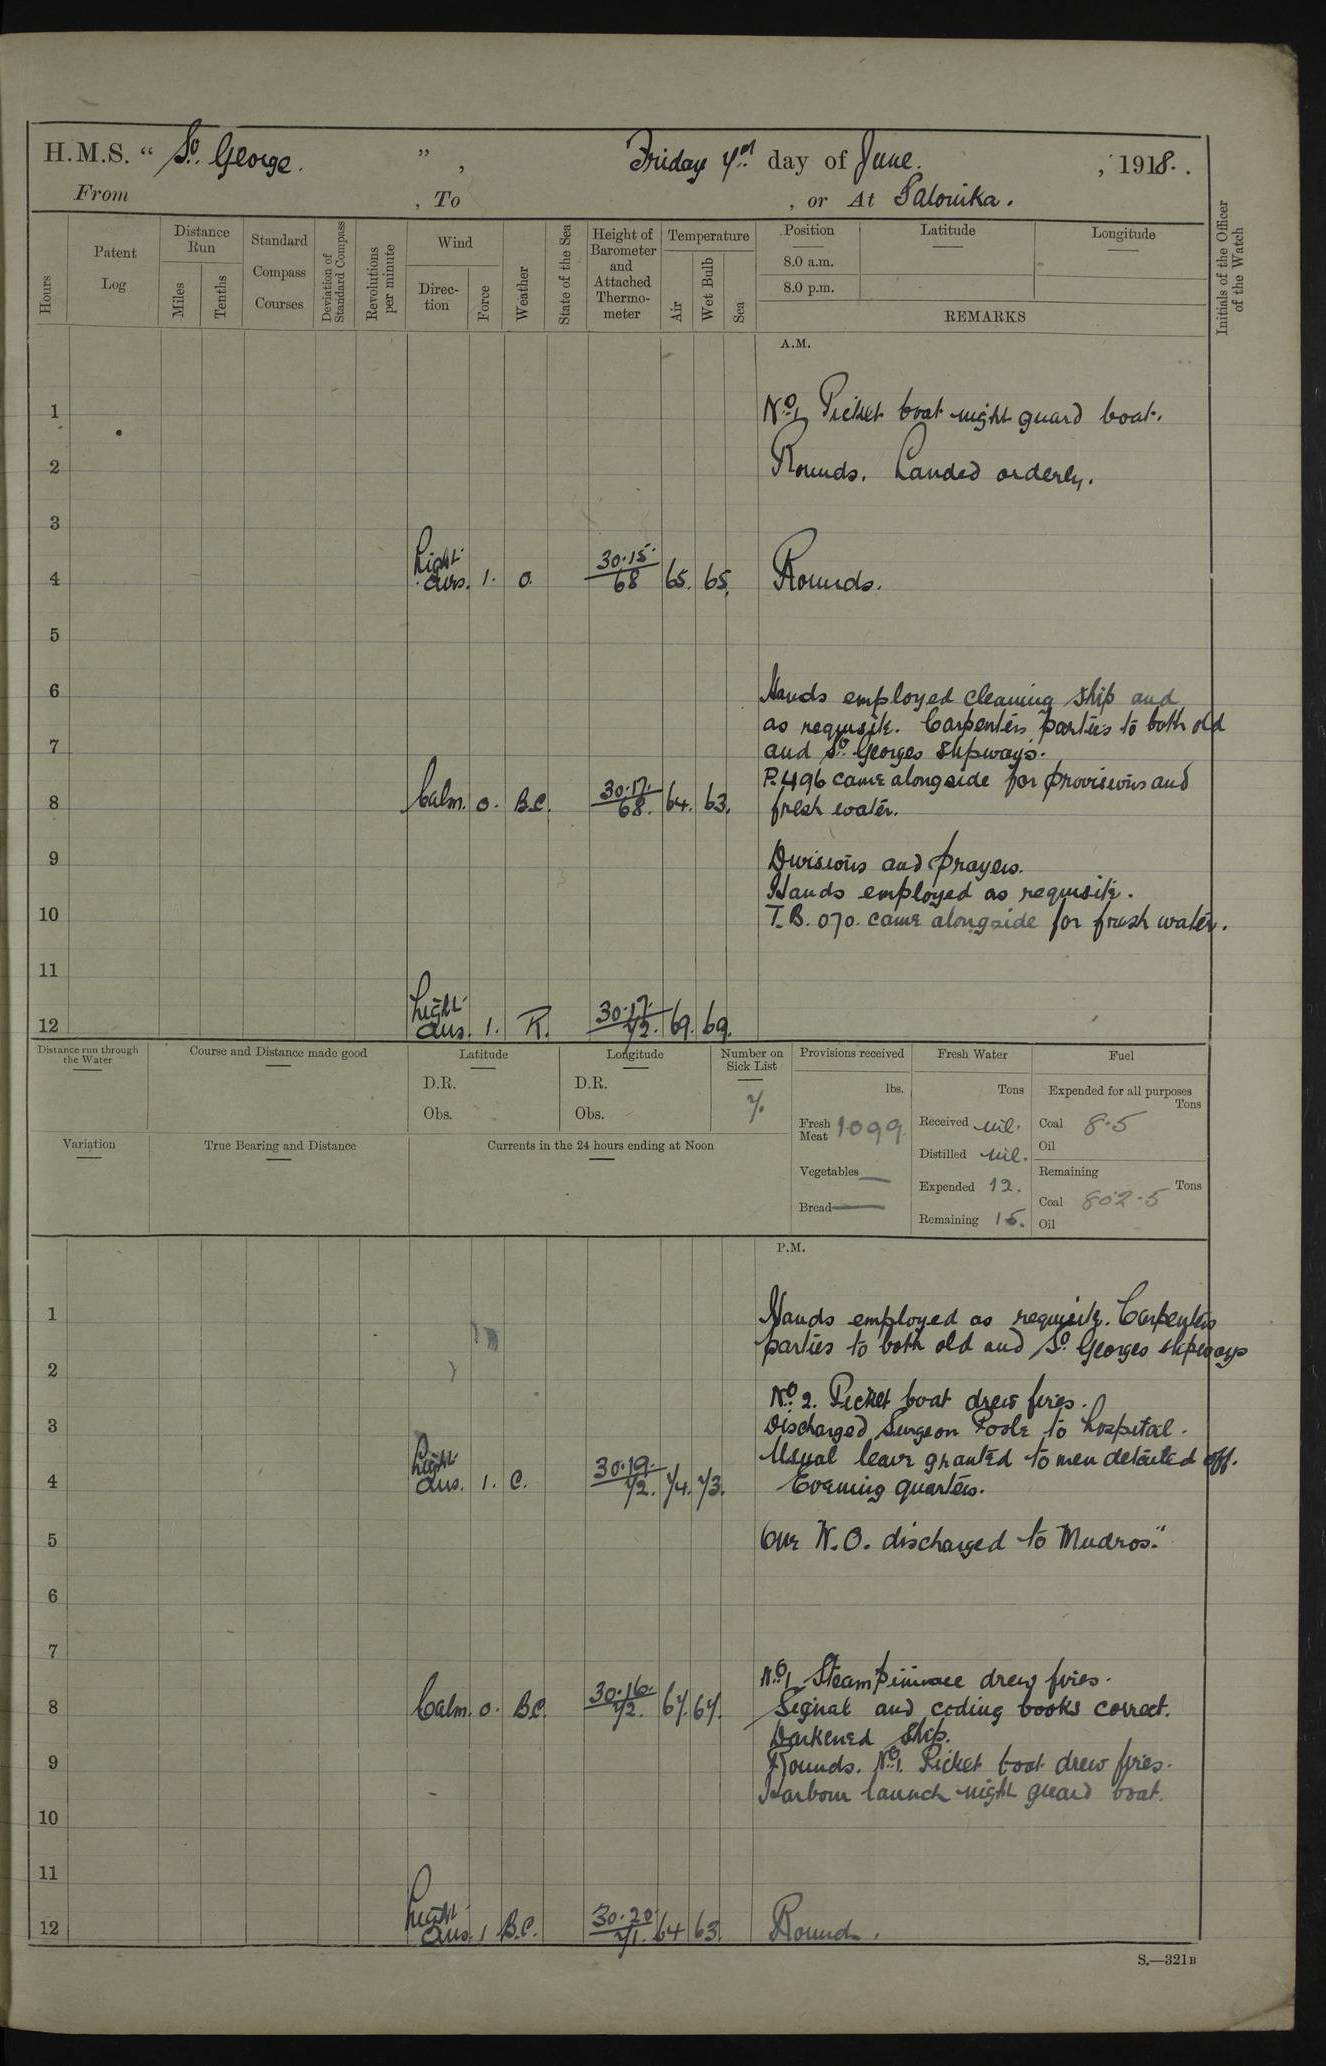 H.M.S. “ St. George. ” , Friday 7th day of June. , 1918.
From , To , or At Salonika.
Hours
Patent Log
Distance Run
Miles
Tenths
Standard Compass Courses
Deviation of Standard Compass
Revolutions per minute
Wind
Direction
Force
Weather
State of the Sea
Height of Barometer and Attached Thermometer
Temperature
Air
Wet Bulb
Sea
Position
8.0 a.m.
8.0 p.m.
Latitude
Longitude
REMARKS
Initials of the Officer of the Watch
A.M.
1 No. 1 Picket boat night guard boat.
2 Rounds. Landed orderly.
3
4 Light airs. 1. O. 30.15 68 65. 65. Rounds.
5
6 Hands employed cleaning ship and
as requisite. Carpenters parties to both old
7 and St. Georges slipways.
P.496 came alongside for provisions and
8 Calm. 0. B.C. 30.17. 68. 64. 63. fresh water.
9 Divisions and prayers.
Hands employed as requisite.
10 T.B. 070. came alongside for fresh water.
11
12 Light airs. 1. R. 30.17. 72. 69. 69.
Distance run through the Water
Course and Distance made good
Latitude
D.R.
Obs.
Longitude
D.R.
Obs.
Number on Sick List
7.
Provisions received
lbs.
Fresh Meat 1099
Vegetables —
Bread —
Fresh Water
Tons
Received nil.
Distilled nil.
Expended 12.
Remaining 15.
Fuel
Expended for all purposes
Tons
Coal 8.5
Oil
Remaining
Tons
Coal 802.5
Oil
Variation
True Bearing and Distance
Currents in the 24 hours ending at Noon
P.M.
1 Hands employed as requisite. Carpenters
parties to both old and St. Georges slipways
2
No. 2. Picket boat drew fires.
3 Discharged Surgeon Poole to hospital.
Usual leave granted to men detailed off.
4 Light airs. 1. C. 30.19. 72. 74. 73. Evening quarters.
5 One W.O. discharged to "Mudros."
6
7
No. 1 Steam pinnace drew fires.
8 Calm. 0. B.C. 30.16. 72. 67. 67. Signal and coding books correct.
Darkened ship.
9 Rounds. No. 1. Picket boat drew fires.
Harbour launch night guard boat.
10
11
12 Light airs. 1 B.C. 30.20 71. 64 63. Rounds.
S.—321B